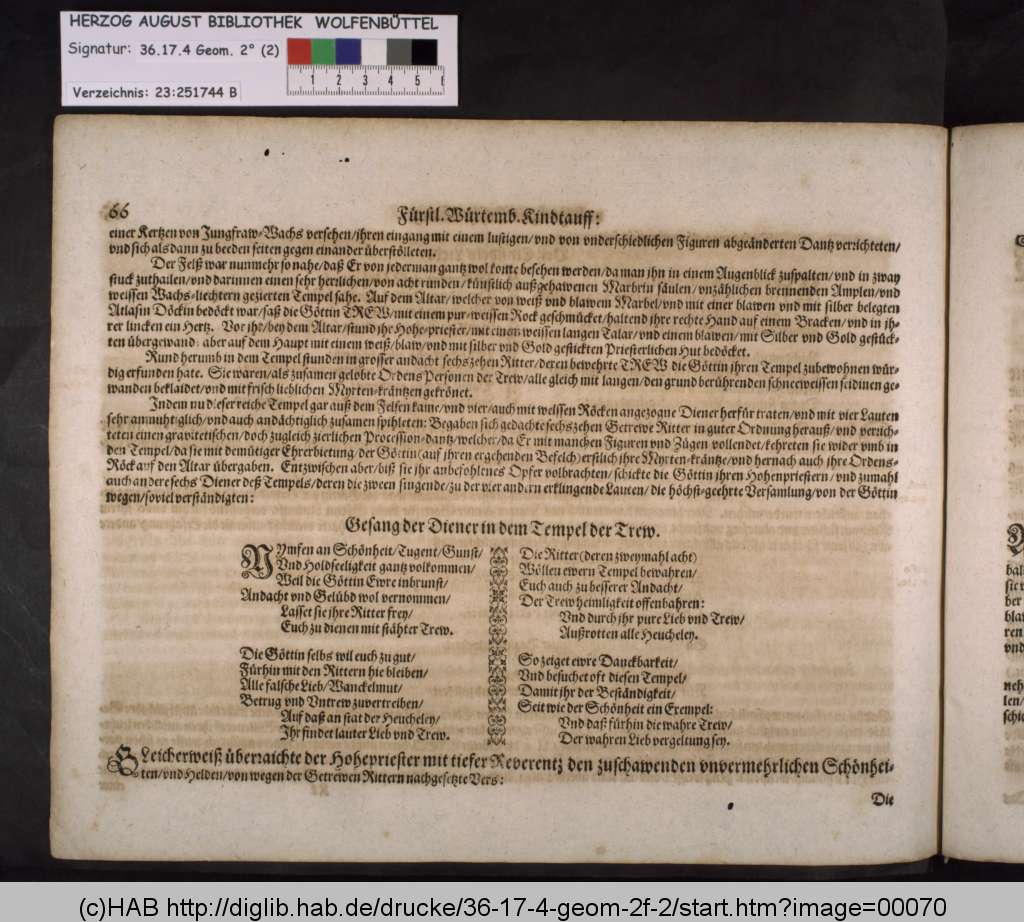 HERZOG AUGUST BIBLIOTHEK WOLFENBÜTTEL
Signatur: 36.17.4 Geom. 2° (2)
1 2 3 4 5 6
Verzeichnis: 23:251744 B
66
Fürstl. Würtemb. Kindtauff:
einer Kertzen von Jungfraw-Wachs versehen/ ihren eingang mit einem lustigen/ vnd von vnderschiedlichen Figuren abgeänderten Dantz verrichteten/
vnd sich als dann zu beeden seiten gegen einander überstölleten.
Der Felß war nunmehr so nahe/ daß Er von jederman gantz wol konte besehen werden/ da man ihn in einem Augenblick zuspalten/ vnd in zway
stuck zuthailen/ vnd darinnen einen sehr herilichen/ von acht runden/ künstlich außgehawenen Marbrin säulen/ vnzählichen brennenden Amplen/ vnd
weissen Wachs-liechtern gezierten Tempel sahe. Auf dem Altar/ welcher von weiß vnd blawem Marbel/ vnd mit einer blawen vnd mit silber belegten
Atlasin Döckin bedöckt war/ saß die Göttin TREW/ mit einem pur-weissen Rock geschmücket/ haltend ihre rechte Hand auf einem Bracken/ vnd in ih-
rer lincken ein Hertz. Vor ihr/ bey dem Altar/ stund ihr Hohe-priester/ mit einen weissen langen Talar/ vnd einem blawen/ mit Silber vnd Gold gestück-
ten übergewand: aber auf dem Haupt mit einem weiß/ blaw/ vnd mit silber vnd Gold gestickten Priesterlichen Hut bedöcket.
Rund herumb in dem Tempel stunden in grosser andacht sechszehen Ritter/ deren bewehrte TREW die Göttin ihren Tempel zubewohnen wür-
dig erfunden hate. Sie waren/ als zusamen gelobte Ordens Personen der Trew/ alle gleich mit langen/ den grund berührenden schneeweissen seidinen ge-
wanden bekleidet/ vnd mit frisch lieblichen Myrten-kräntzen gekrönet.
Indem nu dieser reiche Tempel gar auß dem Felsen kame/ vnd vier/ auch mit weissen Röcken angezogne Diener herfür traten/ vnd mit vier Lauten
sehr anmuhtiglich/ vnd auch andächtiglich zusamen spihleten: Begaben sich gedachte sechszehen Getrewe Ritter in guter Ordnung herauß/ vnd verrich-
teten einen gravitetischen/ doch zugleich zierlichen Procession-dantz/ welcher/ da Er mit manchen Figuren vnd Zügen vollendet/ kehreten sie wider vmb in
den Tempel/ da sie mit demütiger Ehrerbietung/ der Göttin (auf ihren ergehenden Befelch) erstlich ihre Myrten-kräntze/ vnd hernach auch ihre Ordens-
Röck auf den Altar übergaben. Entzwischen aber/ biß sie ihr anbefohlenes Opfer volbrachten/ schickte die Göttin ihren Hohenpriestern/ vnd zumahl
auch andere sechs Diener deß Tempels/ deren die zween singende/ zu der vier andern erklingende Lauten/ die höchst-geehrte Versamlung/ von der Göttin
wegen/ so viel verständigten:
Gesang der Diener in dem Tempel der Trew.
NYmfen an Schönheit/ Tugent/ Gunst/
Vnd Holdseeligkeit gantz volkommen/
Weil die Göttin Ewre inbrunst/
Andacht vnd Gelübd wol vernommen/
Lasset sie ihre Ritter frey/
Euch zu dienen mit stähter Trew.
Die Göttin selbs wil euch zu gut/
Fürhin mit den Rittern hie bleiben/
Alle falsche Lieb/ Wanckelmut/
Betrug vnd Vntrew zuvertreiben/
Auf daß an stat der Heucheley/
Ihr findet lauter Lieb vnd Trew.
Die Ritter (deren zweymahl acht)
Wöllen ewern Tempel bewahren/
Euch auch zu besserer Andacht/
Der Trew heimligkeit offenbahren:
Vnd durch ihr pure Lieb vnd Trew/
Außrotten alle Heucheley.
So zeiget ewre Danckbarkeit/
Vnd besuchet oft diesen Tempel/
Damit ihr der Beständigkeit/
Seit wie der Schönheit ein Exempel:
Vnd daß fürhin die wahre Trew/
Der wahren Lieb vergeltung sey.
GLeicherweiß überraichte der Hohepriester mit tiefer Reverentz den zuschawenden vnvermehrlichen Schönhei-
ten/ vnd Helden/ von wegen der Getrewen Rittern nachgesetzte Vers:
Die
(c)HAB http://diglib.hab.de/drucke/36-17-4-geom-2f-2/start.htm?image=00070